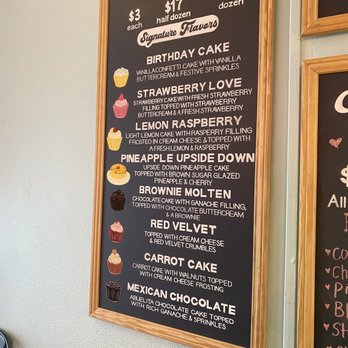 $3 $17
each half dozen dozen
Signature Flavors
BIRTHDAY CAKE
VANILLA CONFETTI CAKE WITH VANILLA
BUTTERCREAM & FESTIVE SPRINKLES
STRAWBERRY LOVE
STRAWBERRY CAKE WITH FRESH STRAWBERRY
FILLING TOPPED WITH STRAWBERRY
BUTTERCREAM & A FRESH STRAWBERRY
LEMON RASPBERRY
LIGHT LEMON CAKE WITH RASPBERRY FILLING
FROSTED IN CREAM CHEESE & TOPPED WITH
A FRESH LEMON & RASPBERRY
PINEAPPLE UPSIDE DOWN
UPSIDE DOWN PINEAPPLE CAKE
TOPPED WITH BROWN SUGAR GLAZED
PINEAPPLE & CHERRY
BROWNIE MOLTEN
CHOCOLATE CAKE WITH GANACHE FILLING,
TOPPED WITH CHOCOLATE BUTTERCREAM
& A BROWNIE
RED VELVET
TOPPED WITH CREAM CHEESE
& RED VELVET CRUMBLES
CARROT CAKE
CARROT CAKE WITH WALNUTS TOPPED
WITH CREAM CHEESE FROSTING
MEXICAN CHOCOLATE
ABUELITA CHOCOLATE CAKE TOPPED
WITH RICH GANACHE & SPRINKLES
$
All